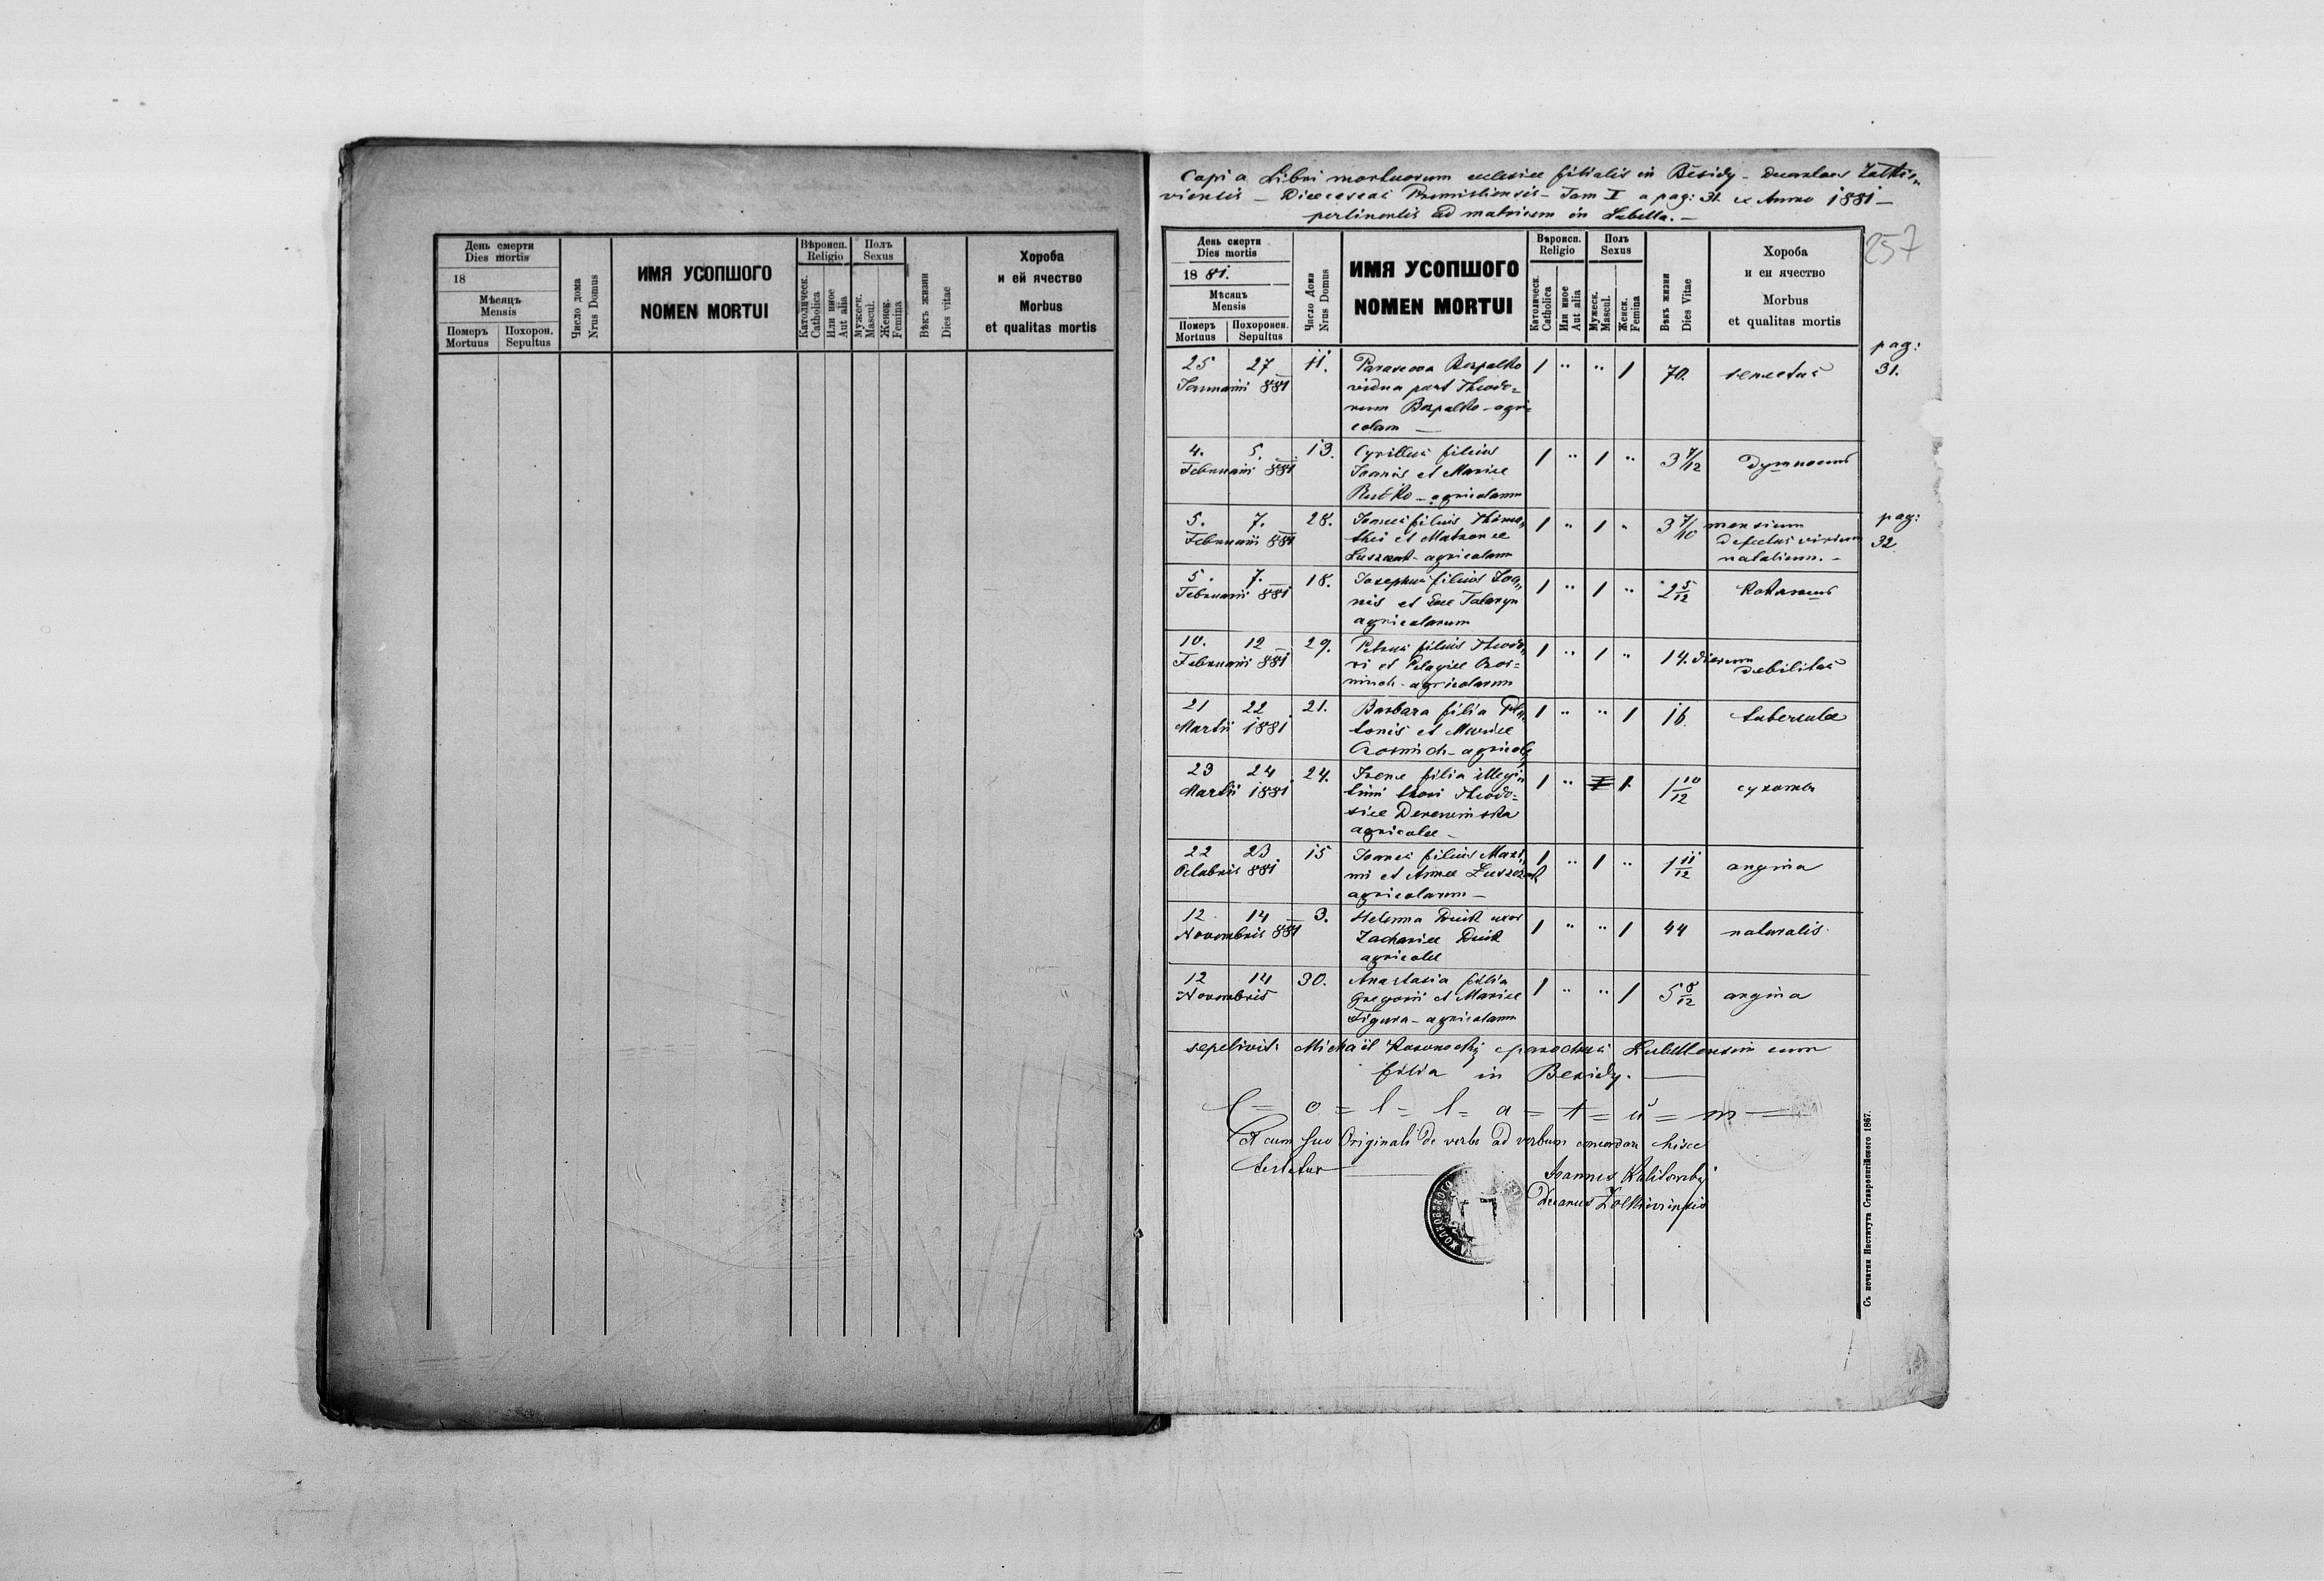 День смерти
Dies mortis
18
Мѣсяцъ
Mensis
Померъ
Mortuus
Похорон.
Sepultus
Число дома
Nrus Domus
ИМЯ УСОПШОГО
NOMEN MORTUI
Вѣроисп.
Religio
Католическ.
Catholica
Или иное
Aut alia
Полъ
Sexus
Мужеск.
Mascul.
Женск.
Femina
Вѣкъ жизни
Dies vitae
Хороба
и ей ячество
Morbus
et qualitas mortis
Copia Libri mortuorum ecclesiae filialis in Besidy - Decanatus Zolkie„
viensis - Dioeceseos Premisliensis - Tom I a pag: 31. ex Anno 1881 -
pertinentis ad matricem in Lubella. -
257
День смерти
Dies mortis
18 81.
Мѣсяцъ
Mensis
Померъ
Mortuus
Похоронен.
Sepultus
Число Дома
Nrus Domus
ИМЯ УСОПШОГО
NOMEN MORTUI
Вѣроисп.
Religio
Католическ.
Catholica
Или иное
Aut alia
Полъ
Sexus
Мужеск.
Mascul.
Женск.
Femina
Вѣкъ жизни
Dies Vitae
Хороба
и еи ячество
Morbus
et qualitas mortis
pag:
31.
25 27 11. Parasceva 1 " " 1 70. senectus
Januarii 881 vidua post Theodo=
rum - agri=
colam -
4. 5. 13. Cyrillus filius 1 " 1 " 3 7/12
Februarii 881 Joannis et Mariae
- agricolarum
pag:
32
5. 7. 28. Joannes filius Thimo„ 1 " 1 " 3 7/10 mensium
Februarii 881 thei et Matronae defectus virium
agricolarum natalium. -
5. 7. 18. Josephus filius Joa„ 1 " 1 " 2 5/12
Februarii 881 nis et Evae
agricolarum
10. 12 29. Petrus filius Theodo„ 1 " 1 " 14. dierum
Februarii 881 ri et Pelagiae debilitas
agricolarum
21 22 21. Barbara filia Pla„ 1 " " 1 16. tuberculae
Martii 1881 tonis et Mariae
23 24 24. Irene filia illegi„ 1 " 1 1 10/12 сухоты
Martii 1881 timi thori Theodo=
siae
agricolae -
22 23 15 Joannes filius Maxi„ 1 " 1 " 1 11/12 angina
Octobris 881 mi et Annae
agricolarum -
12 14 3. Helenna uxor 1 " " 1 44 naturalis.
Novembris 881 Zachariae
agricolae
12 14 30. Anastasia filia 1 " " 1 5 8/12 angina
Novembris Gregorii et Mariae
Figura - agricolarum
sepelivit: Michaël parochus Lubellensis cum
filia in Besidy. -
C = o = l = l = a = t = u = m =
Et cum suo Originali de verbo ad verbum concordare hisce
testatur
Joannes
Decanus Zolkieviensis
Съ печатни Института Ставропигійского 1867.